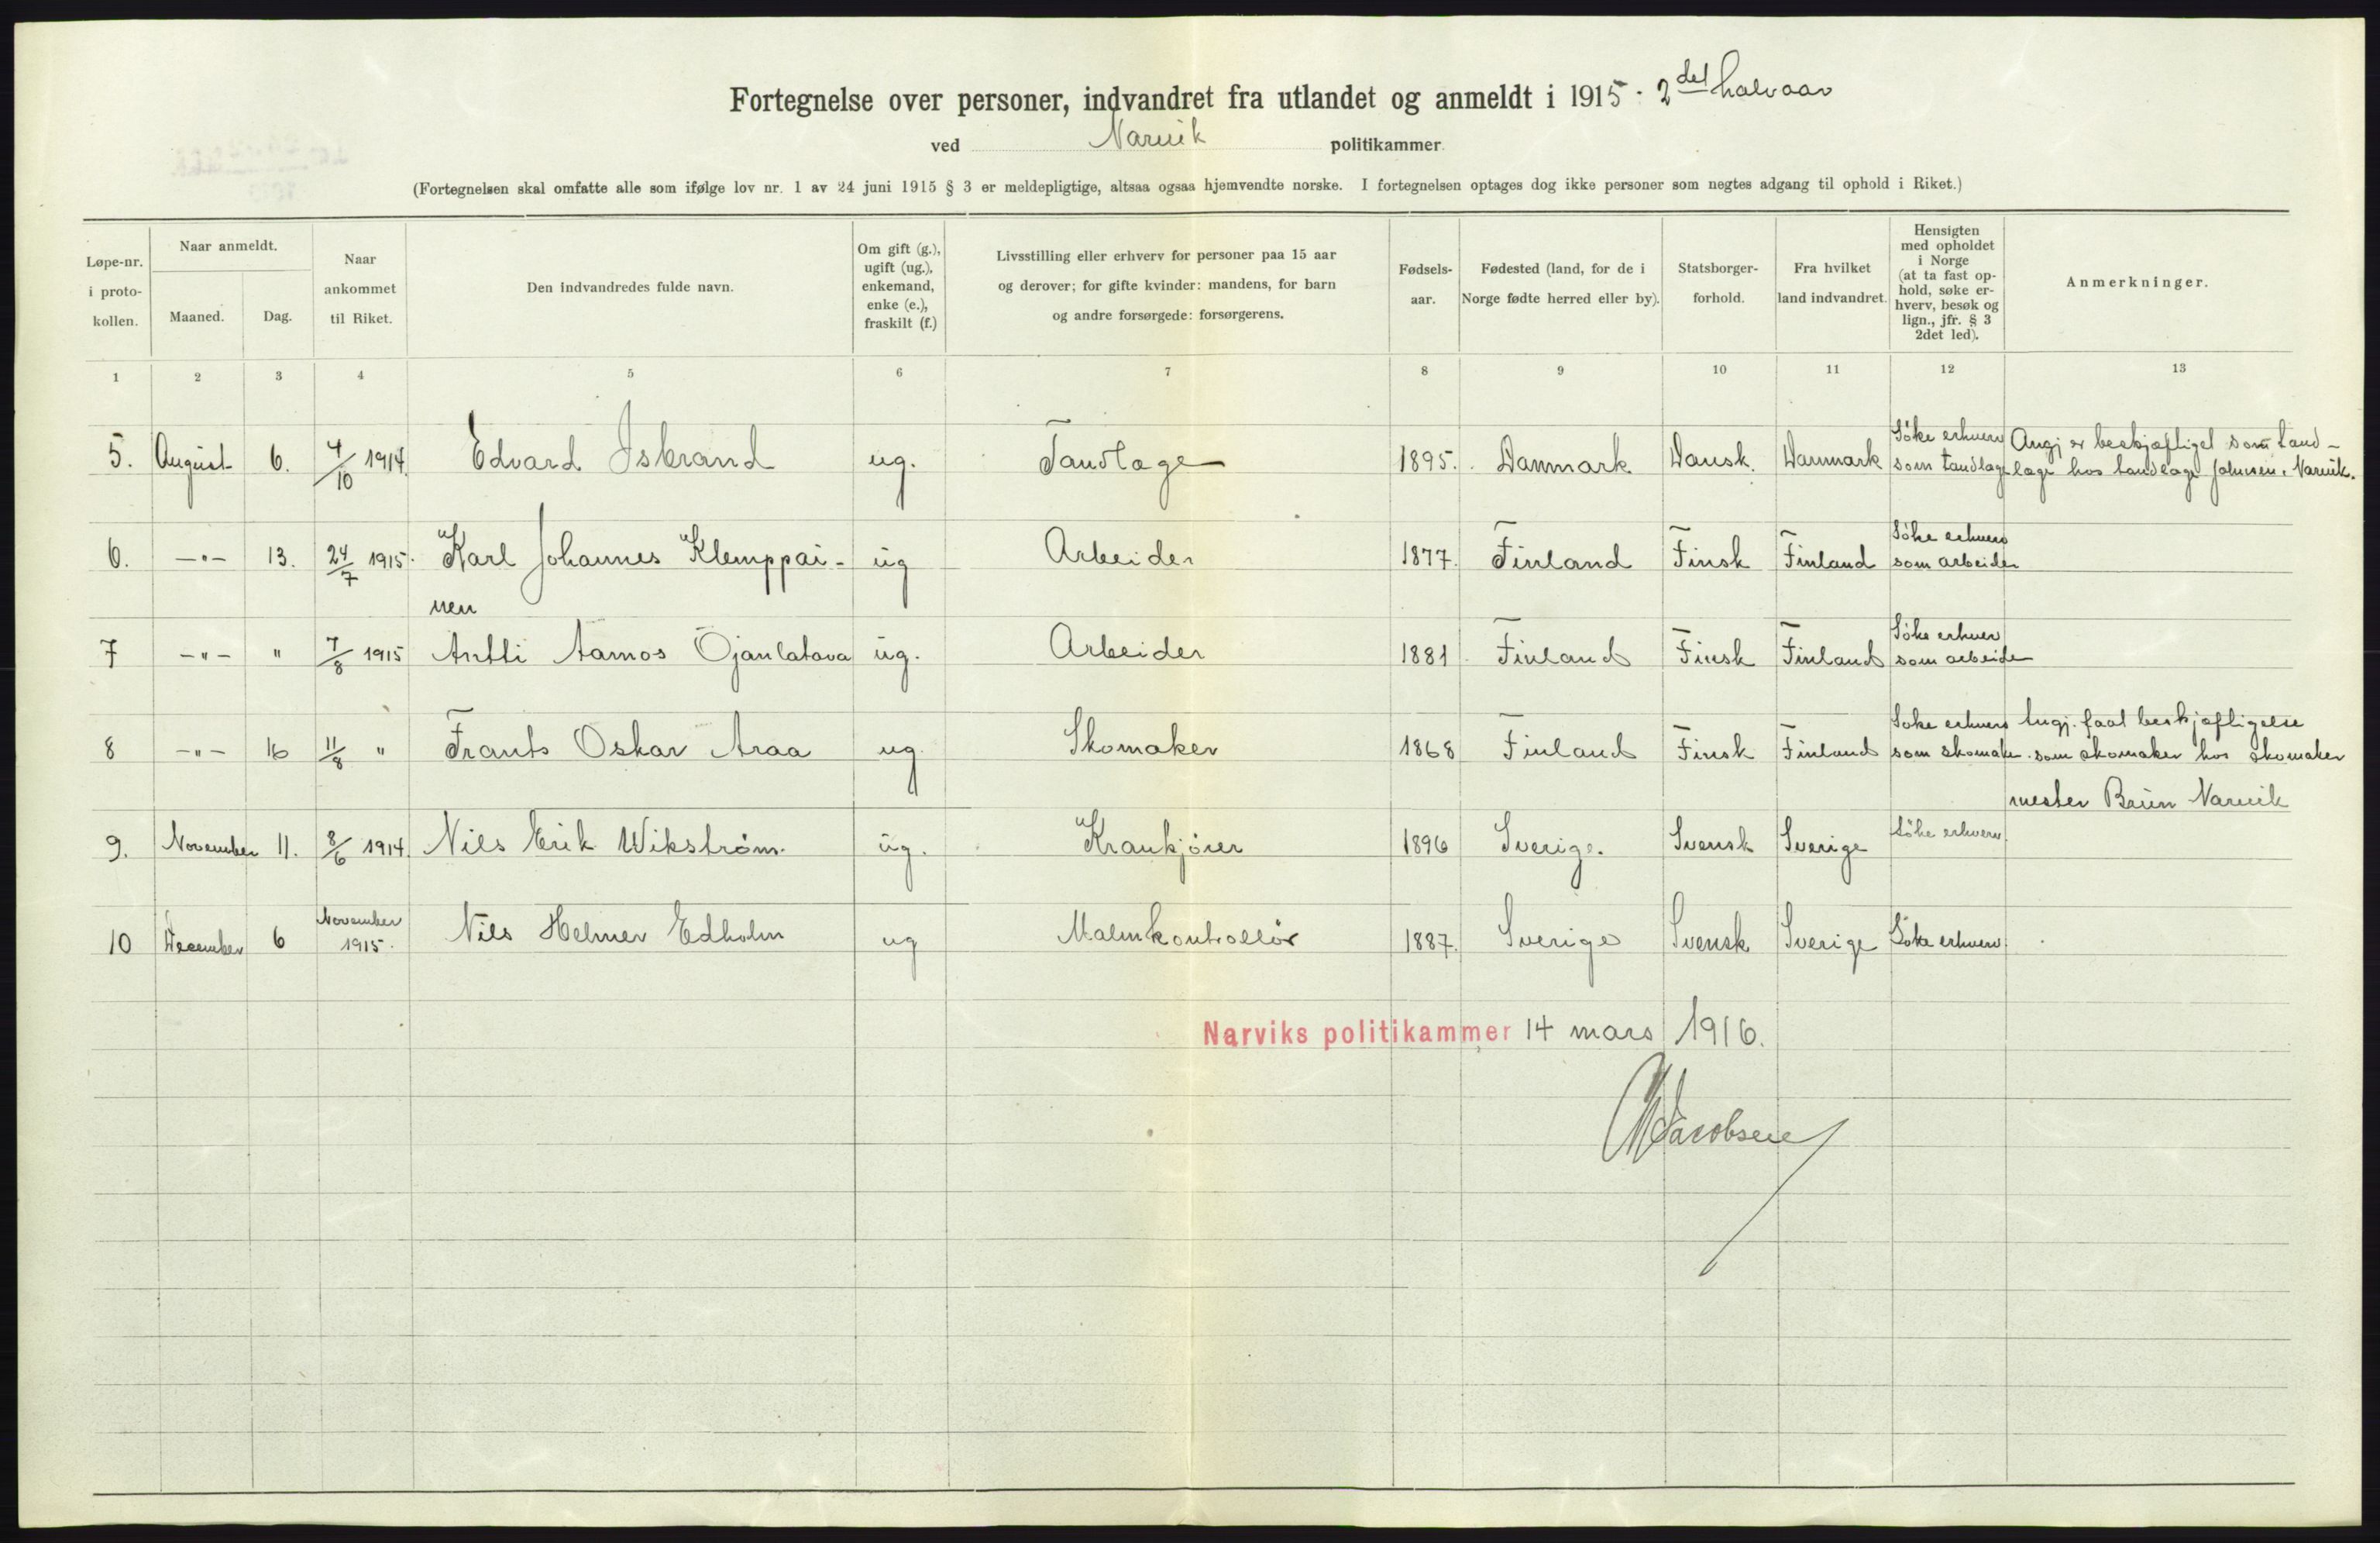 Fortegnelse over personer, indvandret fra utlandet og anmeldt i 1915. 2det halvaar
ved Narvik politikammer.
(Fortegnelsen skal omfatte alle som ifølge lov nr. 1 av 24 juni 1915 § 3 er meldepligtige, altsaa ogsaa hjemvendte norske. I fortegnelsen optages dog ikke personer som negtes adgang til ophold i Riket.)
Løpe-nr. i proto-kollen.
Naar anmeldt.
Maaned.
Dag.
Naar ankommet til Riket.
Den indvandredes fulde navn.
Om gift (g.), ugift (ug.), enkemand, enke (e.), fraskilt (f.)
Livsstilling eller erhverv for personer paa 15 aar
og derover; for gifte kvinder: mandens, for barn
og andre forsørgede: forsørgerens.
Fødsels-aar.
Fødested (land, for de i
Norge fødte herred eller by).
Statsborger-forhold.
Fra hvilket
land indvandret.
Hensigten
med opholdet
i Norge
(at ta fast op-
hold, søke er-
hverv, besøk og
lign., jfr. § 3
2det led).
Anmerkninger.
1 2 3 4 5 6 7 8 9 10 11 12 13
5. August 6. 4/10 1914. Edvard Isbrand ug. Tandlæge 1895. Danmark Dansk. Danmark Söke erhverv som tandlæge Angj er beskjæftiget som tand-
læge hos tandlæge Johnsen, Narvik.
6. —"— 13. 24/7 1915. Karl Johannes Klemppai-
nen ug Arbeider 1877. Finland Finsk Finland Söke erhverv som arbeider
7 —"— " 7/8 1915 Antti Aamos Ojanlatava ug. Arbeider 1881. Finland Finsk Finland Söke erhverv som arbeider
8 —"— 16 11/8 " Frants Oskar Araa ug. Skomaker 1868 Finland Finsk Finland Søke erhverv som skomaker. Angj. faat beskjæftigelse
som skomaker hos skomaker
mester Bruun Narvik
9. November 11. 8/6 1914. Nils Erik Wikström. ug. Krankjörer 1896 Sverige. Svensk Sverige Söke erhverv
10 December 6 November 1915. Nils Helmer Edholm ug Malmkontrollör 1887. Sverige Svensk Sverige Söke erhverv
Narviks politikammer 14 mars 1916.
Jacobsen